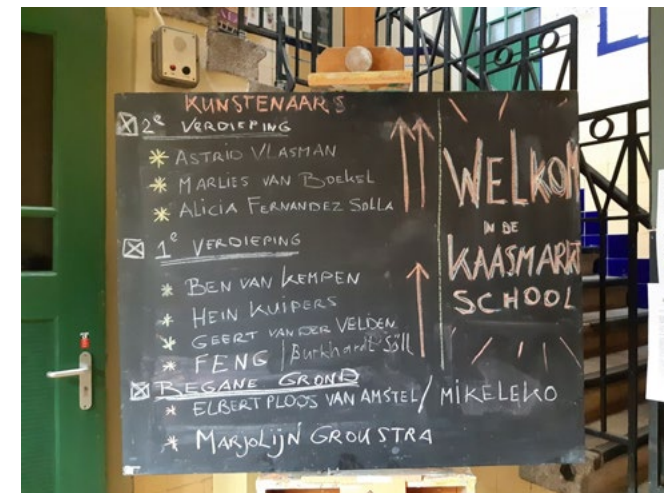 KUNSTENAARS
2e VERDIEPING
* ASTRID VLASMAN
* MARLIES VAN BOEKEL
* ALICIA FERNANDEZ SOLLA
1e VERDIEPING
* BEN VAN KEMPEN
* HEIN KUIPERS
* GEERT VAN DER VELDEN
* FENG / Burkhardt Söll
BEGANE GROND
* ELBERT PLOOS VAN AMSTEL / MIKELEKO
* MARJOLIJN GROUSTRA
WELKOM
IN DE
KAASMARKT
SCHOOL